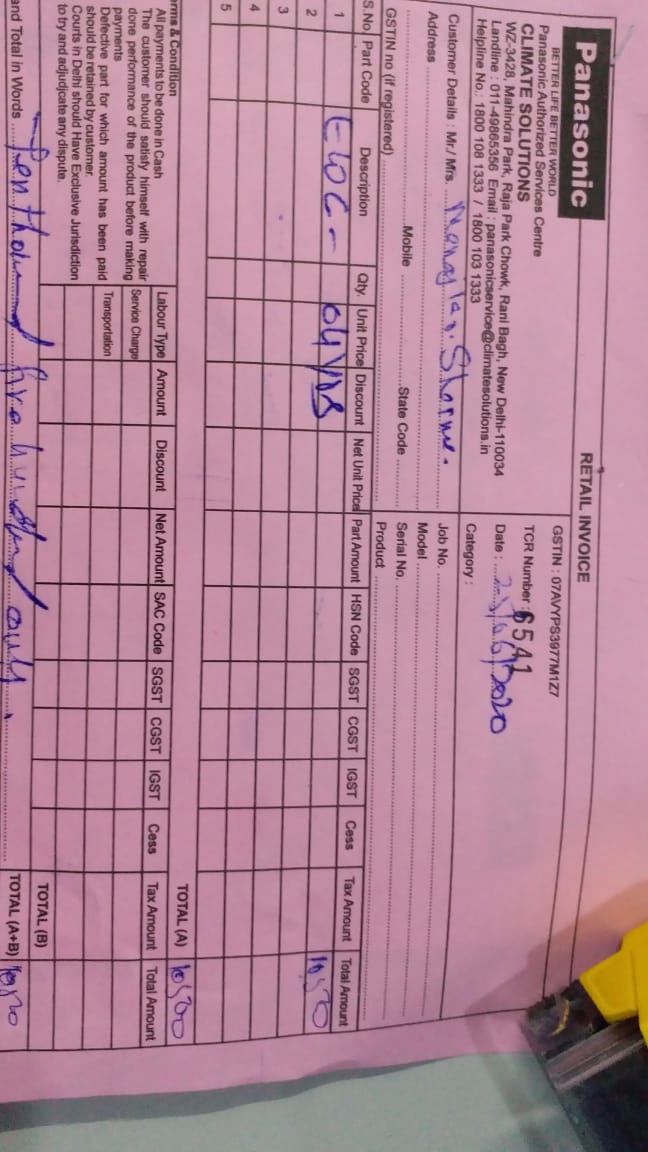 RETAIL INVOICE
Panasonic
BETTER LIFE BETTER WORLD
Panasonic Authorized Services Centre
CLIMATE SOLUTIONS
WZ-3428, Mahindra Park, Raja Park Chowk, Rani Bagh, New Delhi-110034
Landline : 011-49865356 Email : panasonicservice@climatesolutions.in
Helpline No.: 1800 108 1333 / 1800 103 1333
GSTIN : 07AVYPS3977M1Z7
TCR Number : 6541
Date : /06/2020
Category :
Customer Details : Mr./ Mrs. Sharma.
Address
Mobile State Code
GSTIN no (if registered)
Job No.
Model
Serial No.
Product
S.No Part Code Description Qty. Unit Price Discount Net Unit Price Part Amount HSN Code SGST CGST IGST Cess Tax Amount Total Amount
1
2
3
4
5
TOTAL (A) 10500
rms & Condition
All payments to be done in Cash
The customer should satisfy himself with repair
done performance of the product before making
payments
Defective part for which amount has been paid
should be retained by customer.
Courts in Delhi should Have Exclusive Jurisdiction
to try and adjudicate any dispute.
Labour Type Amount Discount Net Amount SAC Code SGST CGST IGST Cess Tax Amount Total Amount
Service Charge
Transportation
TOTAL (B)
and Total in Words Ten thousand five hundred only.
TOTAL (A+B) 10500